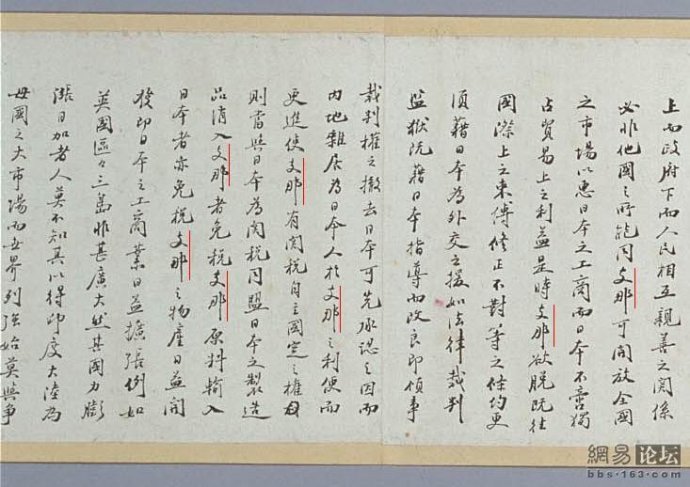 上而政府下而人民相互親善之關係
必非他國之所能同支那可開放全國
之市場以惠日本之工商而日本不啻獨
占貿易上之利益是時支那欲脫既往
國際上之束縛修正不對等之條約更
須藉日本為外交之援如法律裁判
監獄既藉日本指導而改良即領事
裁判權之撤去日本可先承認之因而
內地雜居為日本人於支那之利便而
更進使支那有關稅自主國定之權
則當與日本為關稅同盟日本之製造
品消入支那者免稅支那原料輸入
日本者亦免稅支那之物產日益開
發即日本之工商業日益擴張例如
英國區々三島非甚廣大然其國力膨
漲日加者人莫不知其以得印度大陸為
母國之大市場而世界列強始莫與爭
網易论坛
bbs.163.com